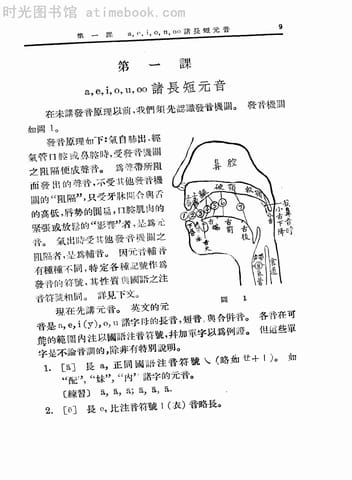 时光图书馆
book.kongfz.com
第一課 a, e, i, o, u, oo 諸長短元音 9
第一課
a, e, i, o, u, oo 諸長短元音
在未講發音原理以前,我們須先認識發音機關。 發音機關
如圖 1。
發音原理如下:氣自肺出,經
氣管口腔或鼻腔時,受發音機關
之阻隔使成聲音。 爲聲帶所阻
而發出的聲音,不受其他發音機
關的“阻隔”,只受牙牀開合與舌
的高低,脣勢的圓扁,口腔肌肉的
緊張或放鬆的“影響”者,是爲元
音。 氣出時受其他發音機關之
阻隔者,是爲輔音。 因元音輔音
有種種不同,特定各種記號作爲
發音的符號,其性質與國語之注
音符號相同。 詳見下文。
鼻腔
硬顎
軟顎
舌尖
舌前
舌後
發鼻音時
小舌下垂
食道
聲帶
圖 1
現在先講元音。 英文的元
音是 a, e, i (y), o, u 諸字母的長音,短音,與合併音。 各音在可
能的範圍內注以國語注音符號,幷加單字以爲例證。 但這些單
字是不論音調的,除非有特別說明。
1. [ā] 長 a, 正同國語注音符號ㄟ (略如ㄝ+ㄧ)。 如
“配”,“妹”,“內”諸字的元音。
〔練習〕 ā, ā, ā; ā, ā, ā.
2. [ē] 長 e, 比注音符號ㄧ(衣)音略長。